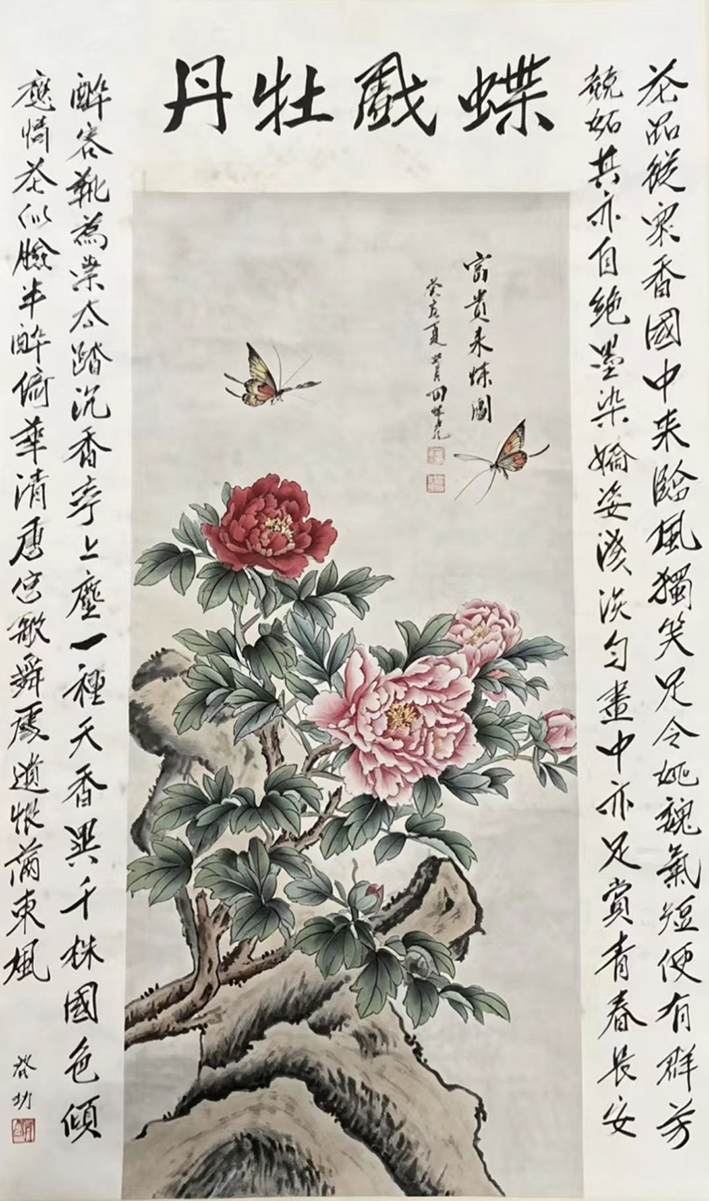 蝶戲牡丹
花品從眾香國中来臨風獨笑足令姚魏氣短便有群芳
競妬其亦自絕墨染嬌姿淺淡勻畫中亦足賞青春長安
富貴来圖
癸亥夏月田世光
醉客靴為太踏沉香亭上塵一種天香異千株國色傾
應憐花似臉半醉倚華清唐宮歌舞處遺恨滿東風
啓功